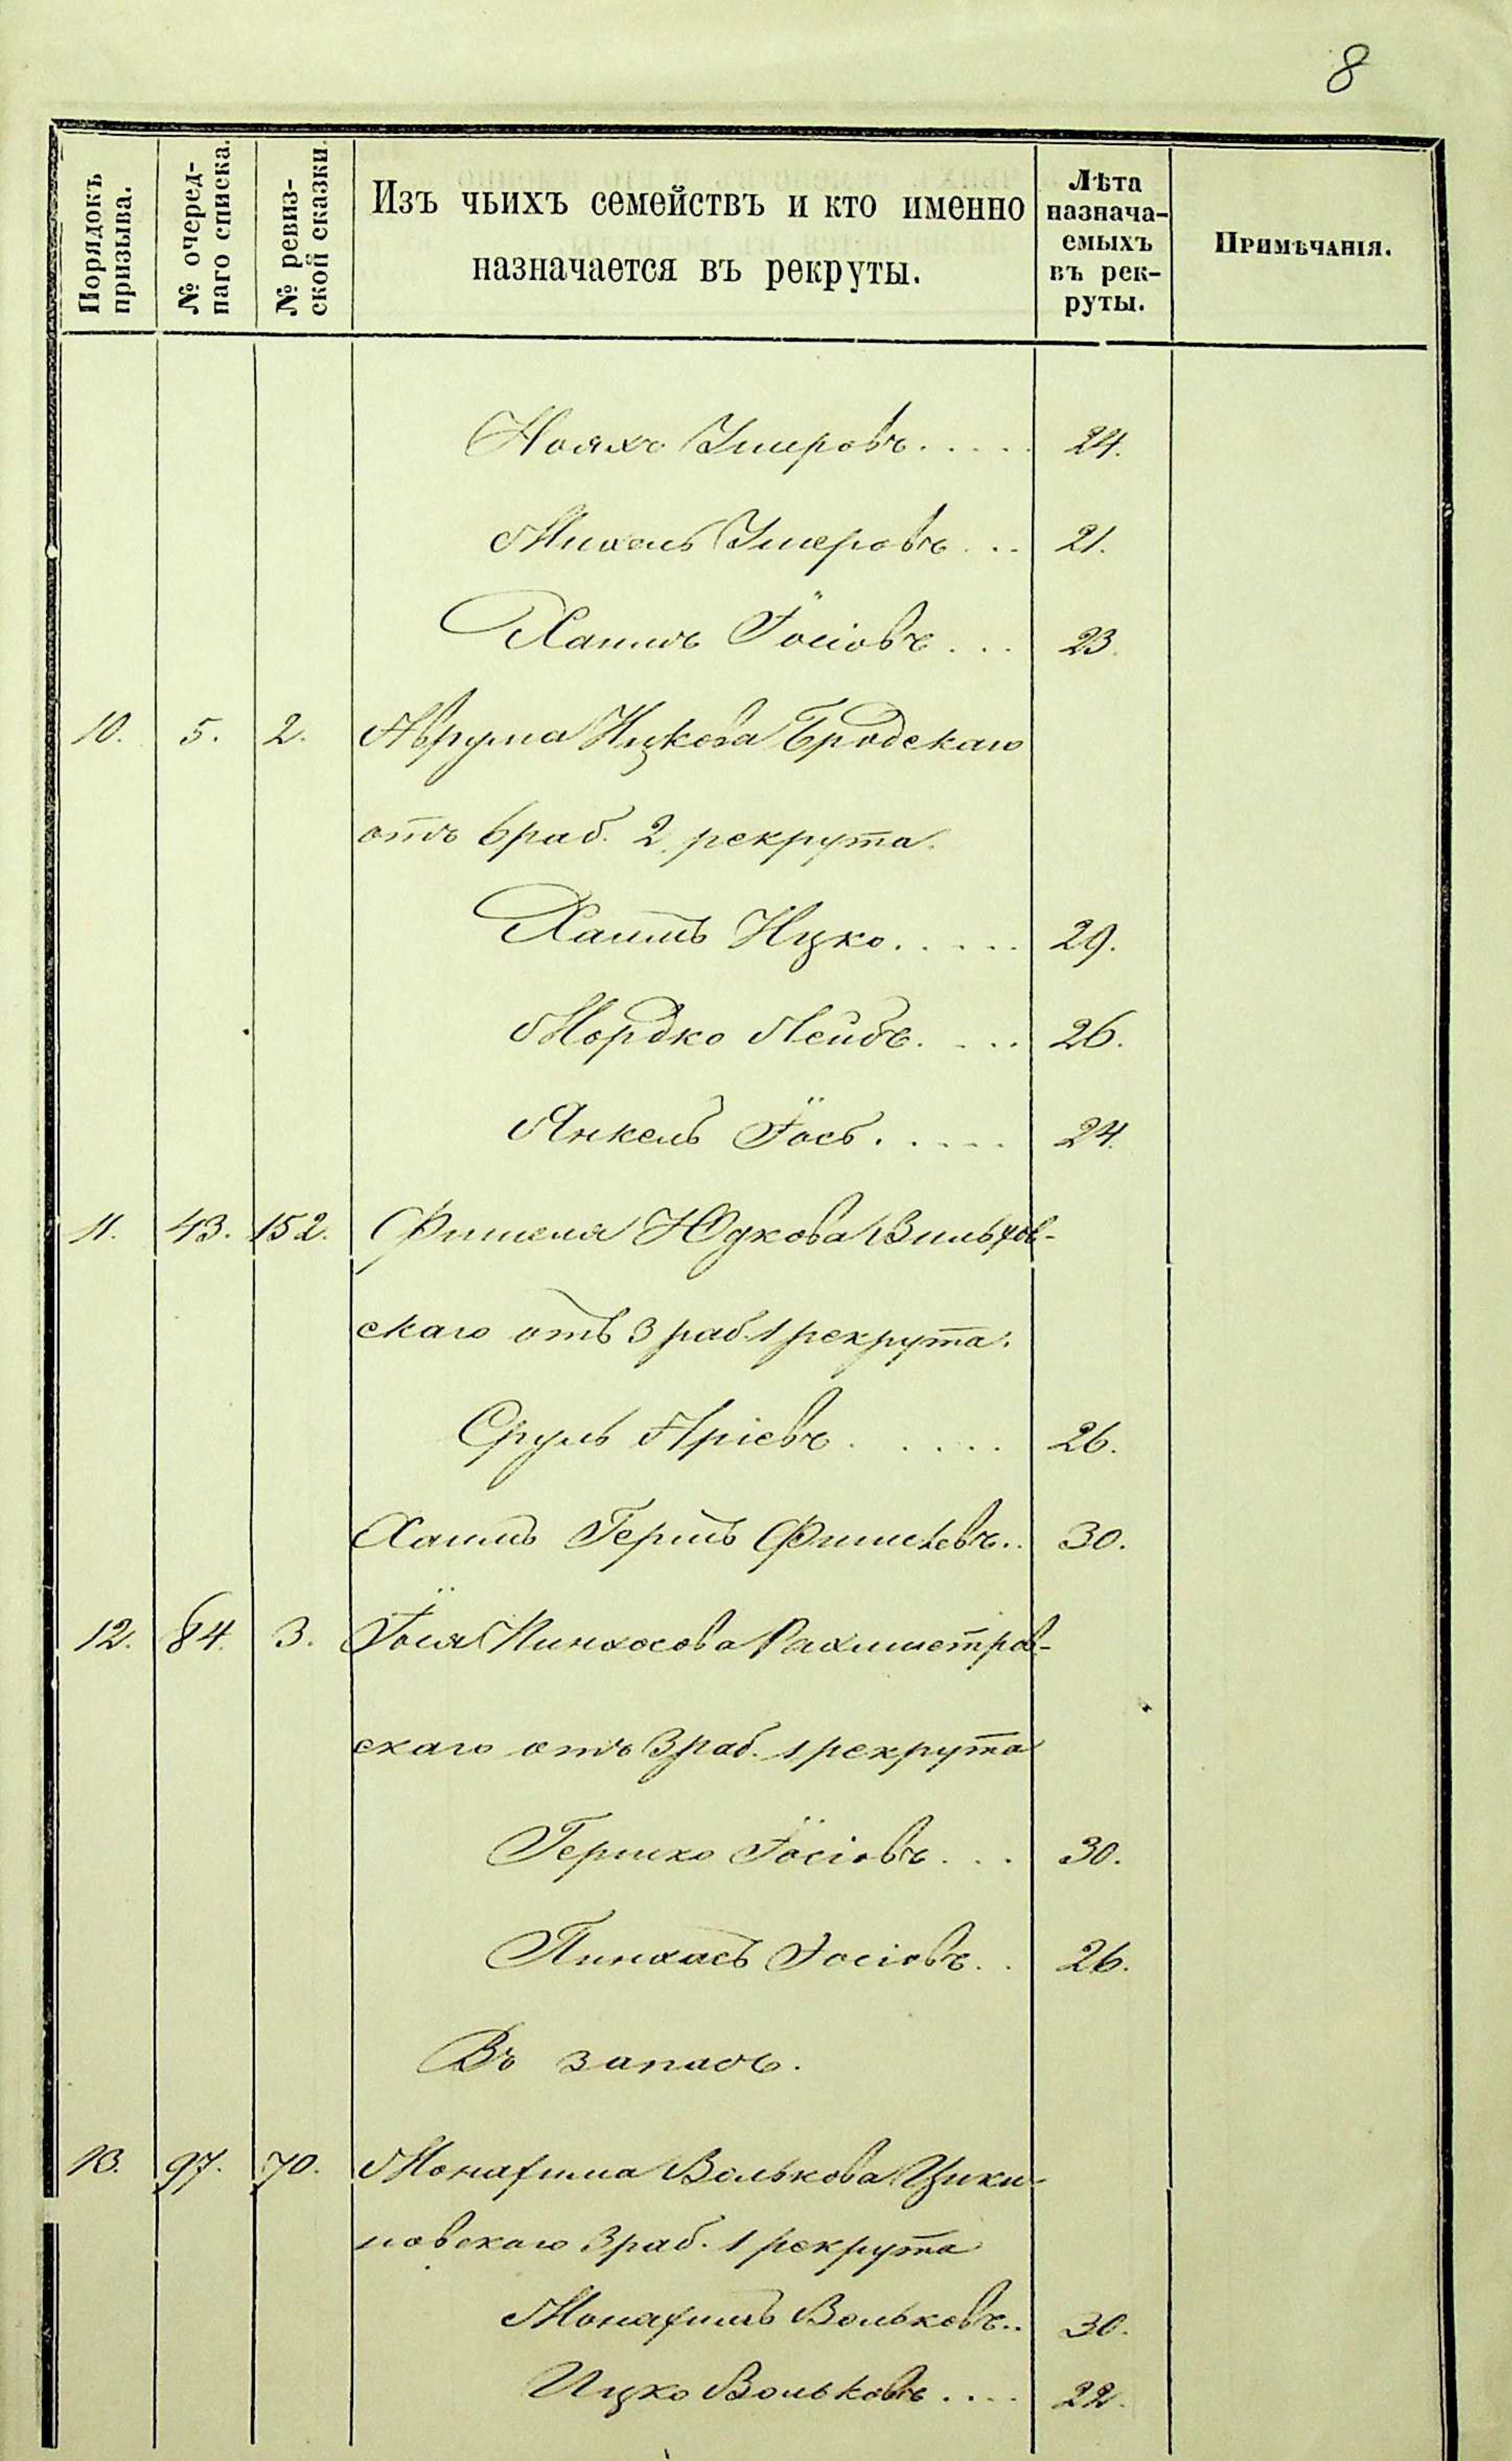 8
Порядокъ призыва.
№ очереднаго списка.
№ ревизской сказки.
Изъ чьихъ семействъ и кто именно
назначается въ рекруты.
Лѣта
назнача-
емыхъ
въ рек-
руты.
Примѣчанія.
Ноахъ Умеровъ..... 24.
Михель Умеровъ... 21.
Хаимъ Іосіовъ... 23.
10. 5. 2. Аврума Ицкова Бродскаго
отъ 6 раб. 2 рекрута.
Хаимъ Ицко..... 29.
Мордко Лейбъ.... 26.
Янкель Іось..... 24.
11. 43. 152. Фишеля Юдкова
скаго отъ 3 раб. 1 рекрута.
Сруль Аріевъ..... 26.
Хаимъ Гершъ Фишелевъ.. 30.
12. 84. 3. Іося Пинхосова Рахмистров-
скаго отъ 3 раб. 1 рекрута
Гершко Іосіовъ... 30.
Пинхасъ Іосіовъ.. 26.
Въ запасъ.
13. 97. 70. Монахима Волькова Цики-
новскаго 3 раб. 1 рекрута
Монахимъ Вольковъ.. 30.
Ицко Вольковъ.... 22.